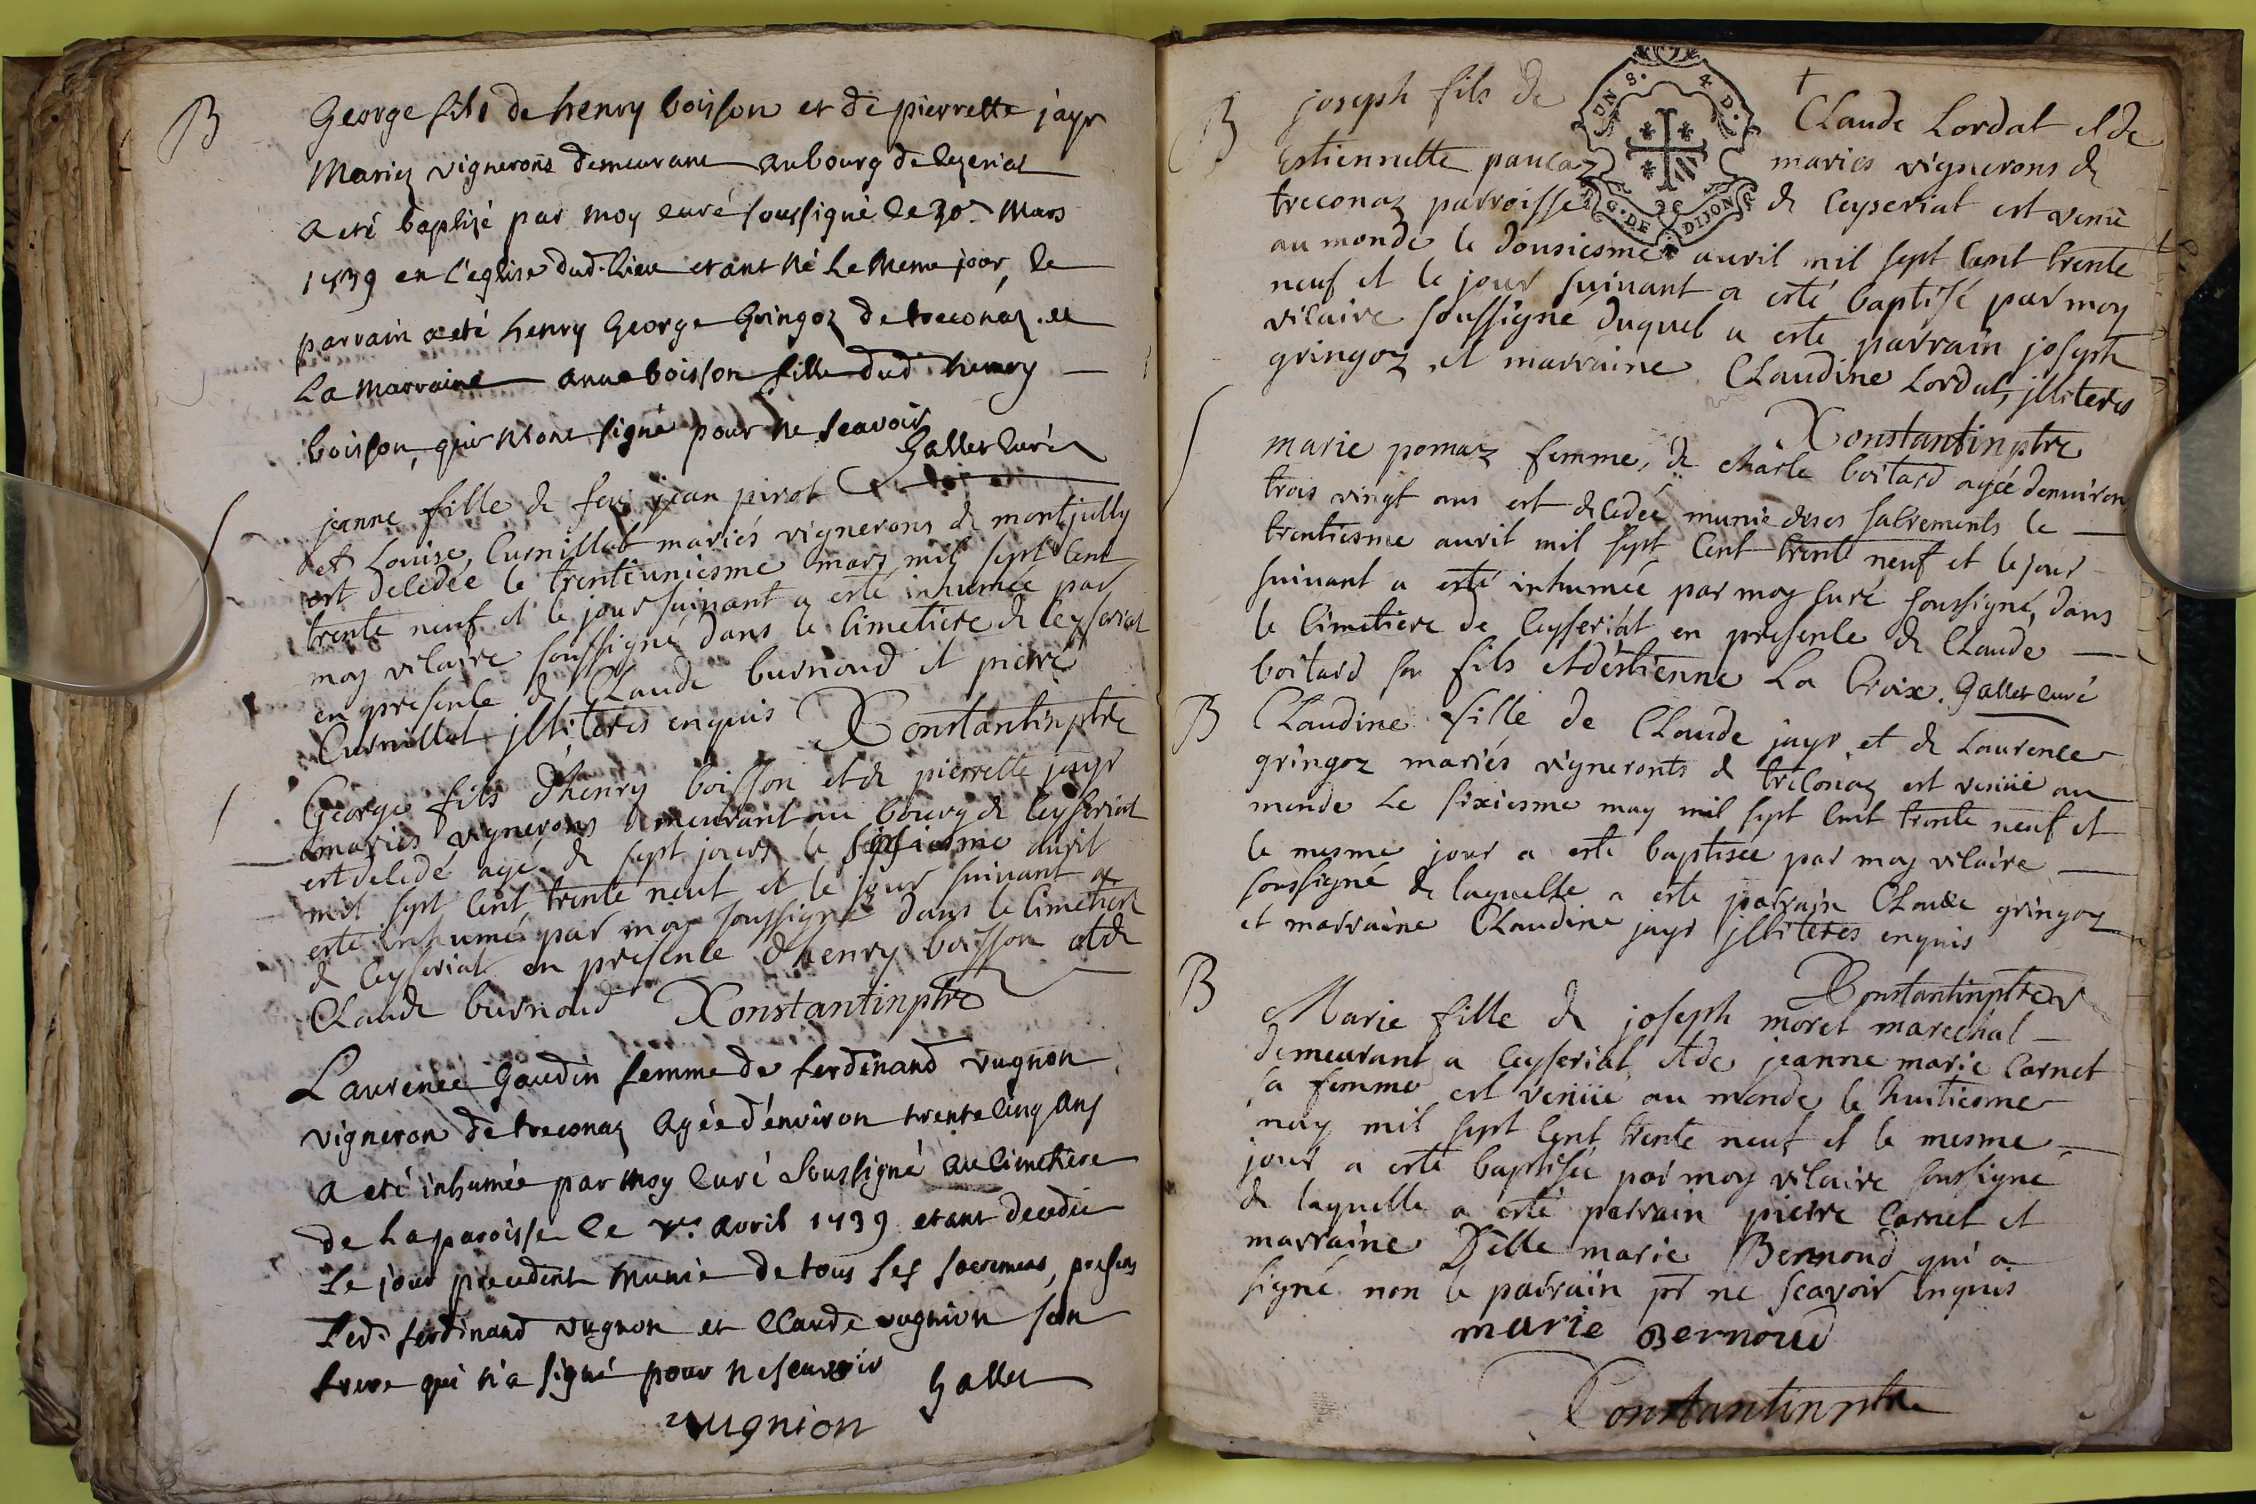 B
George fils de henry boisson et de pierrette jayr
Mariez vignerons demeurant au bourg de Ceyseriat
a eté baptizé par moy curé soussigné le 30e Mars
1739 en l'eglise dud. Lieu etant né le meme jour, le
parrain a eté henry George Gringoz de treconaz et
La Marraine anne boisson fille dud. henry
boisson, qui n'ont signé pour ne scavoir
Gallet curé
jeanne fille de feu jean pirot
et Louise Curnillat mariés vignerons de montjully
est decedée le trenteuniesme mars mil sept cent
trente neuf et le jour suivant a esté inhumée par
moy vicaire soussigné dans le cimetiere de Ceyseriat
en presence de Claude burnoud et pierre
Curnillat jlliteres enquis Constantin ptre
George fils d'henry boisson et de pierrette jayr
mariés vignerons demeurant au bourg de Ceyseriat
est decedé agé de sept jours le sixiesme avril
mil sept cent trente neuf et le jour suivant a
esté inhumé par moy soussigné dans le cimetiere
de Ceyseriat en presence d'henry boisson et de
Claude burnoud Constantin ptre
Laurence Gaudin femme de ferdinand vugnon
vigneron de treconaz agée d'environ trente cinq ans
a eté inhumée par moy curé soussigné au cimetiere
de La paroisse le avril 1739 etant decedée
Le jour precedent munie de tous ses sacremens, presens
Led. ferdinand vugnon et Claude vugnion son
frere qui n'a signé pour ne scavoir Gallet
vugnion
DUN S. 4 D.
G. DE DIJON
B
joseph fils de Claude Lordat et de
Estiennette paucaz mariés vignerons de
treconaz parroisse de Ceyseriat est venu
au monde le dousiesme avril mil sept cent trente
neuf et le jour suivant a esté baptisé par moy
vicaire soussigné duquel a esté parrain joseph
gringoz et marraine Claudine Lordat, jlliteres
Constantin ptre
marie pomaz femme de charle boitard agée d'environ
trois vingt ans est decedée munie de ses sacrements le
trentiesme avril mil sept cent trente neuf et le jour
suivant a esté inhumée par moy curé soussigné, dans
le cimetiere de Ceyseriat en presence de Claude
boitard son fils et d'estienne La Croix. Gallet curé
B
Claudine fille de Claude jayr et de Laurence
gringoz mariés vigneronts de treconaz est venüe au
monde le sixiesme may mil sept cent trente neuf et
le mesme jour a esté baptisée par moy vicaire
soussigné de laquelle a esté parrain Claude gringoz
et marraine Claudine jayr jlliteres enquis
Constantin ptre
B
Marie fille de joseph moret marechal
demeurant a Ceyseriat et de jeanne marie Carnet
sa femme est venüe au monde le huitiesme
may mil sept cent trente neuf et le mesme
jour a esté baptisée par moy vicaire soussigné
de laquelle a esté parrain pierre Carnet et
marraine Delle marie Bernoud qui a
signé non le parrain pr ne scavoir enquis
marie Bernoud
Constantin ptre